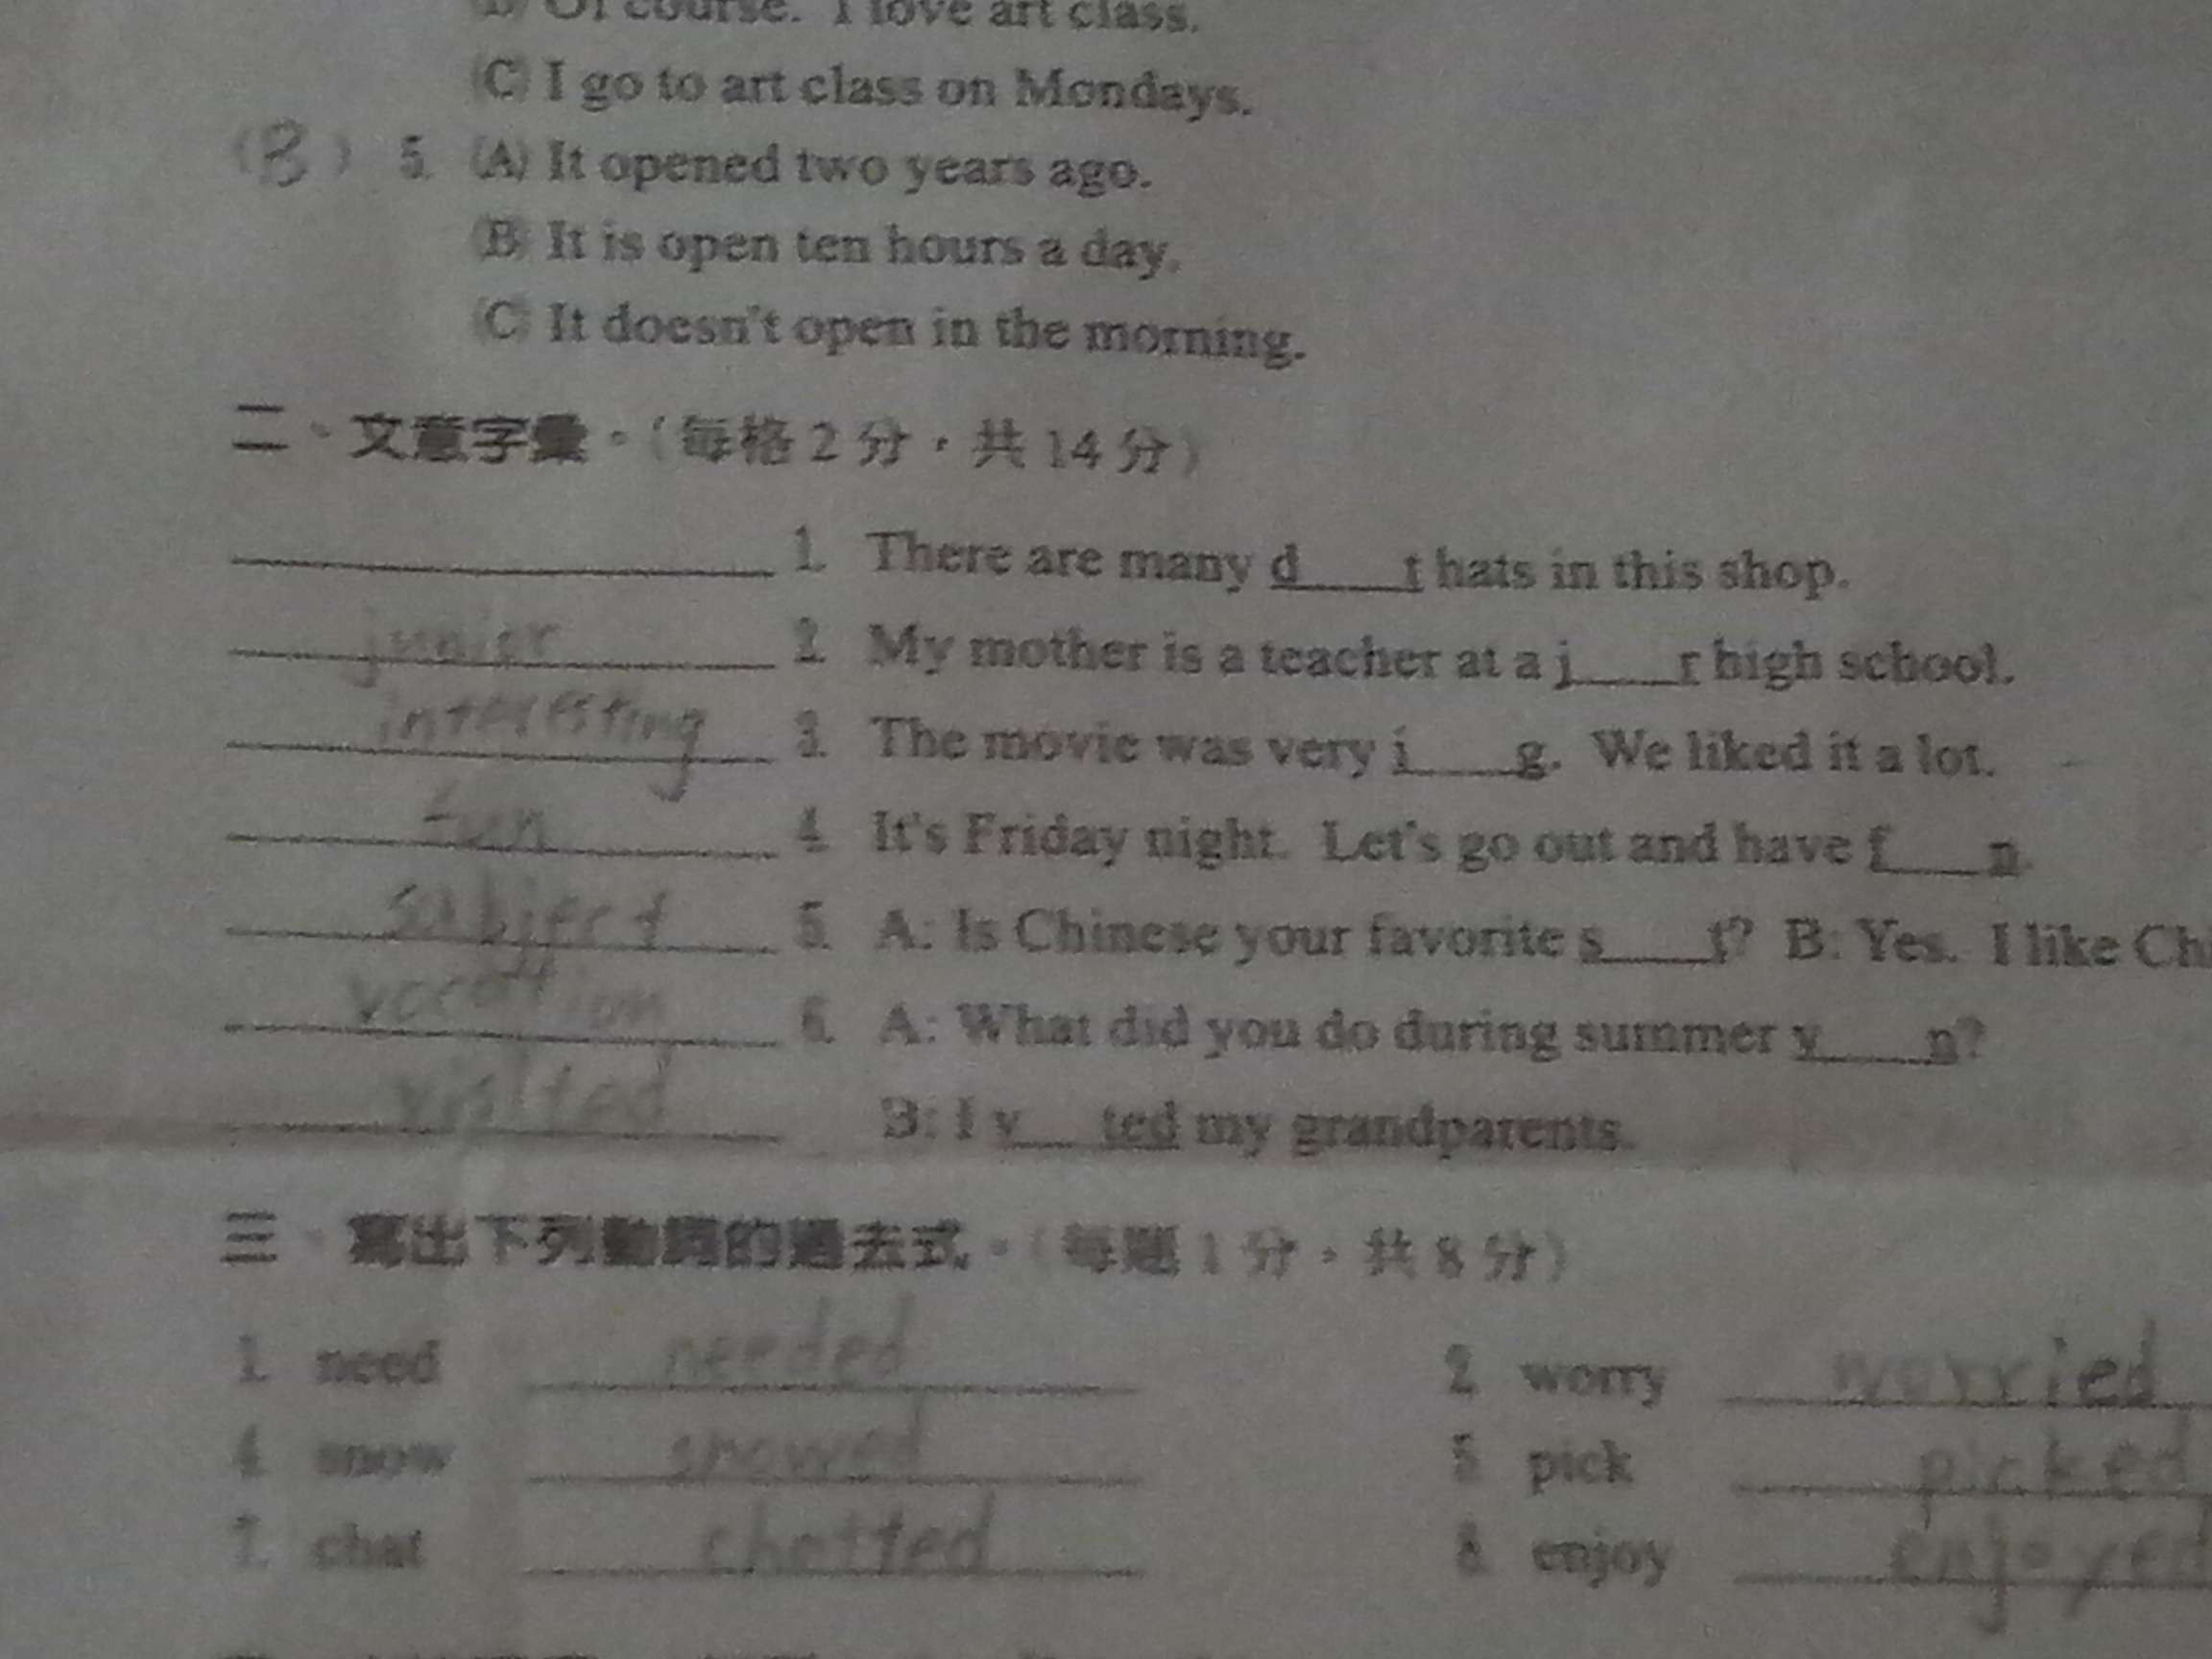 Of course. I love art class.
(C) I go to art class on Mondays.
(B) 5. (A) It opened two years ago.
(B) It is open ten hours a day.
(C) It doesn't open in the morning.
二、文意字彙。(每格2分,共14分)
1. There are many d____t hats in this shop.
junior 2. My mother is a teacher at a j____r high school.
interesting 3. The movie was very i____g. We liked it a lot.
fun 4. It's Friday night. Let's go out and have f____n.
subject 5. A: Is Chinese your favorite s____t? B: Yes. I like Chi
vocation 6. A: What did you do during summer v____n?
visited B: I v____ted my grandparents.
三、寫出下列動詞的過去式。(每題1分,共8分)
1. need needed 2. worry worried
4. snow snowed 5. pick picked
7. chat chatted 8. enjoy enjoyed